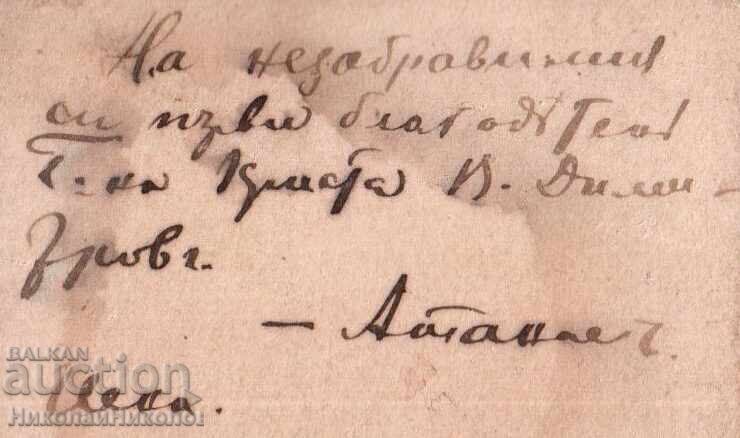 На незабравимия
си пръви благодетел
Г-на Христа В. Дими-
тровъ.
– Атанасъ
BALKAN
auction
НиколайНиколов